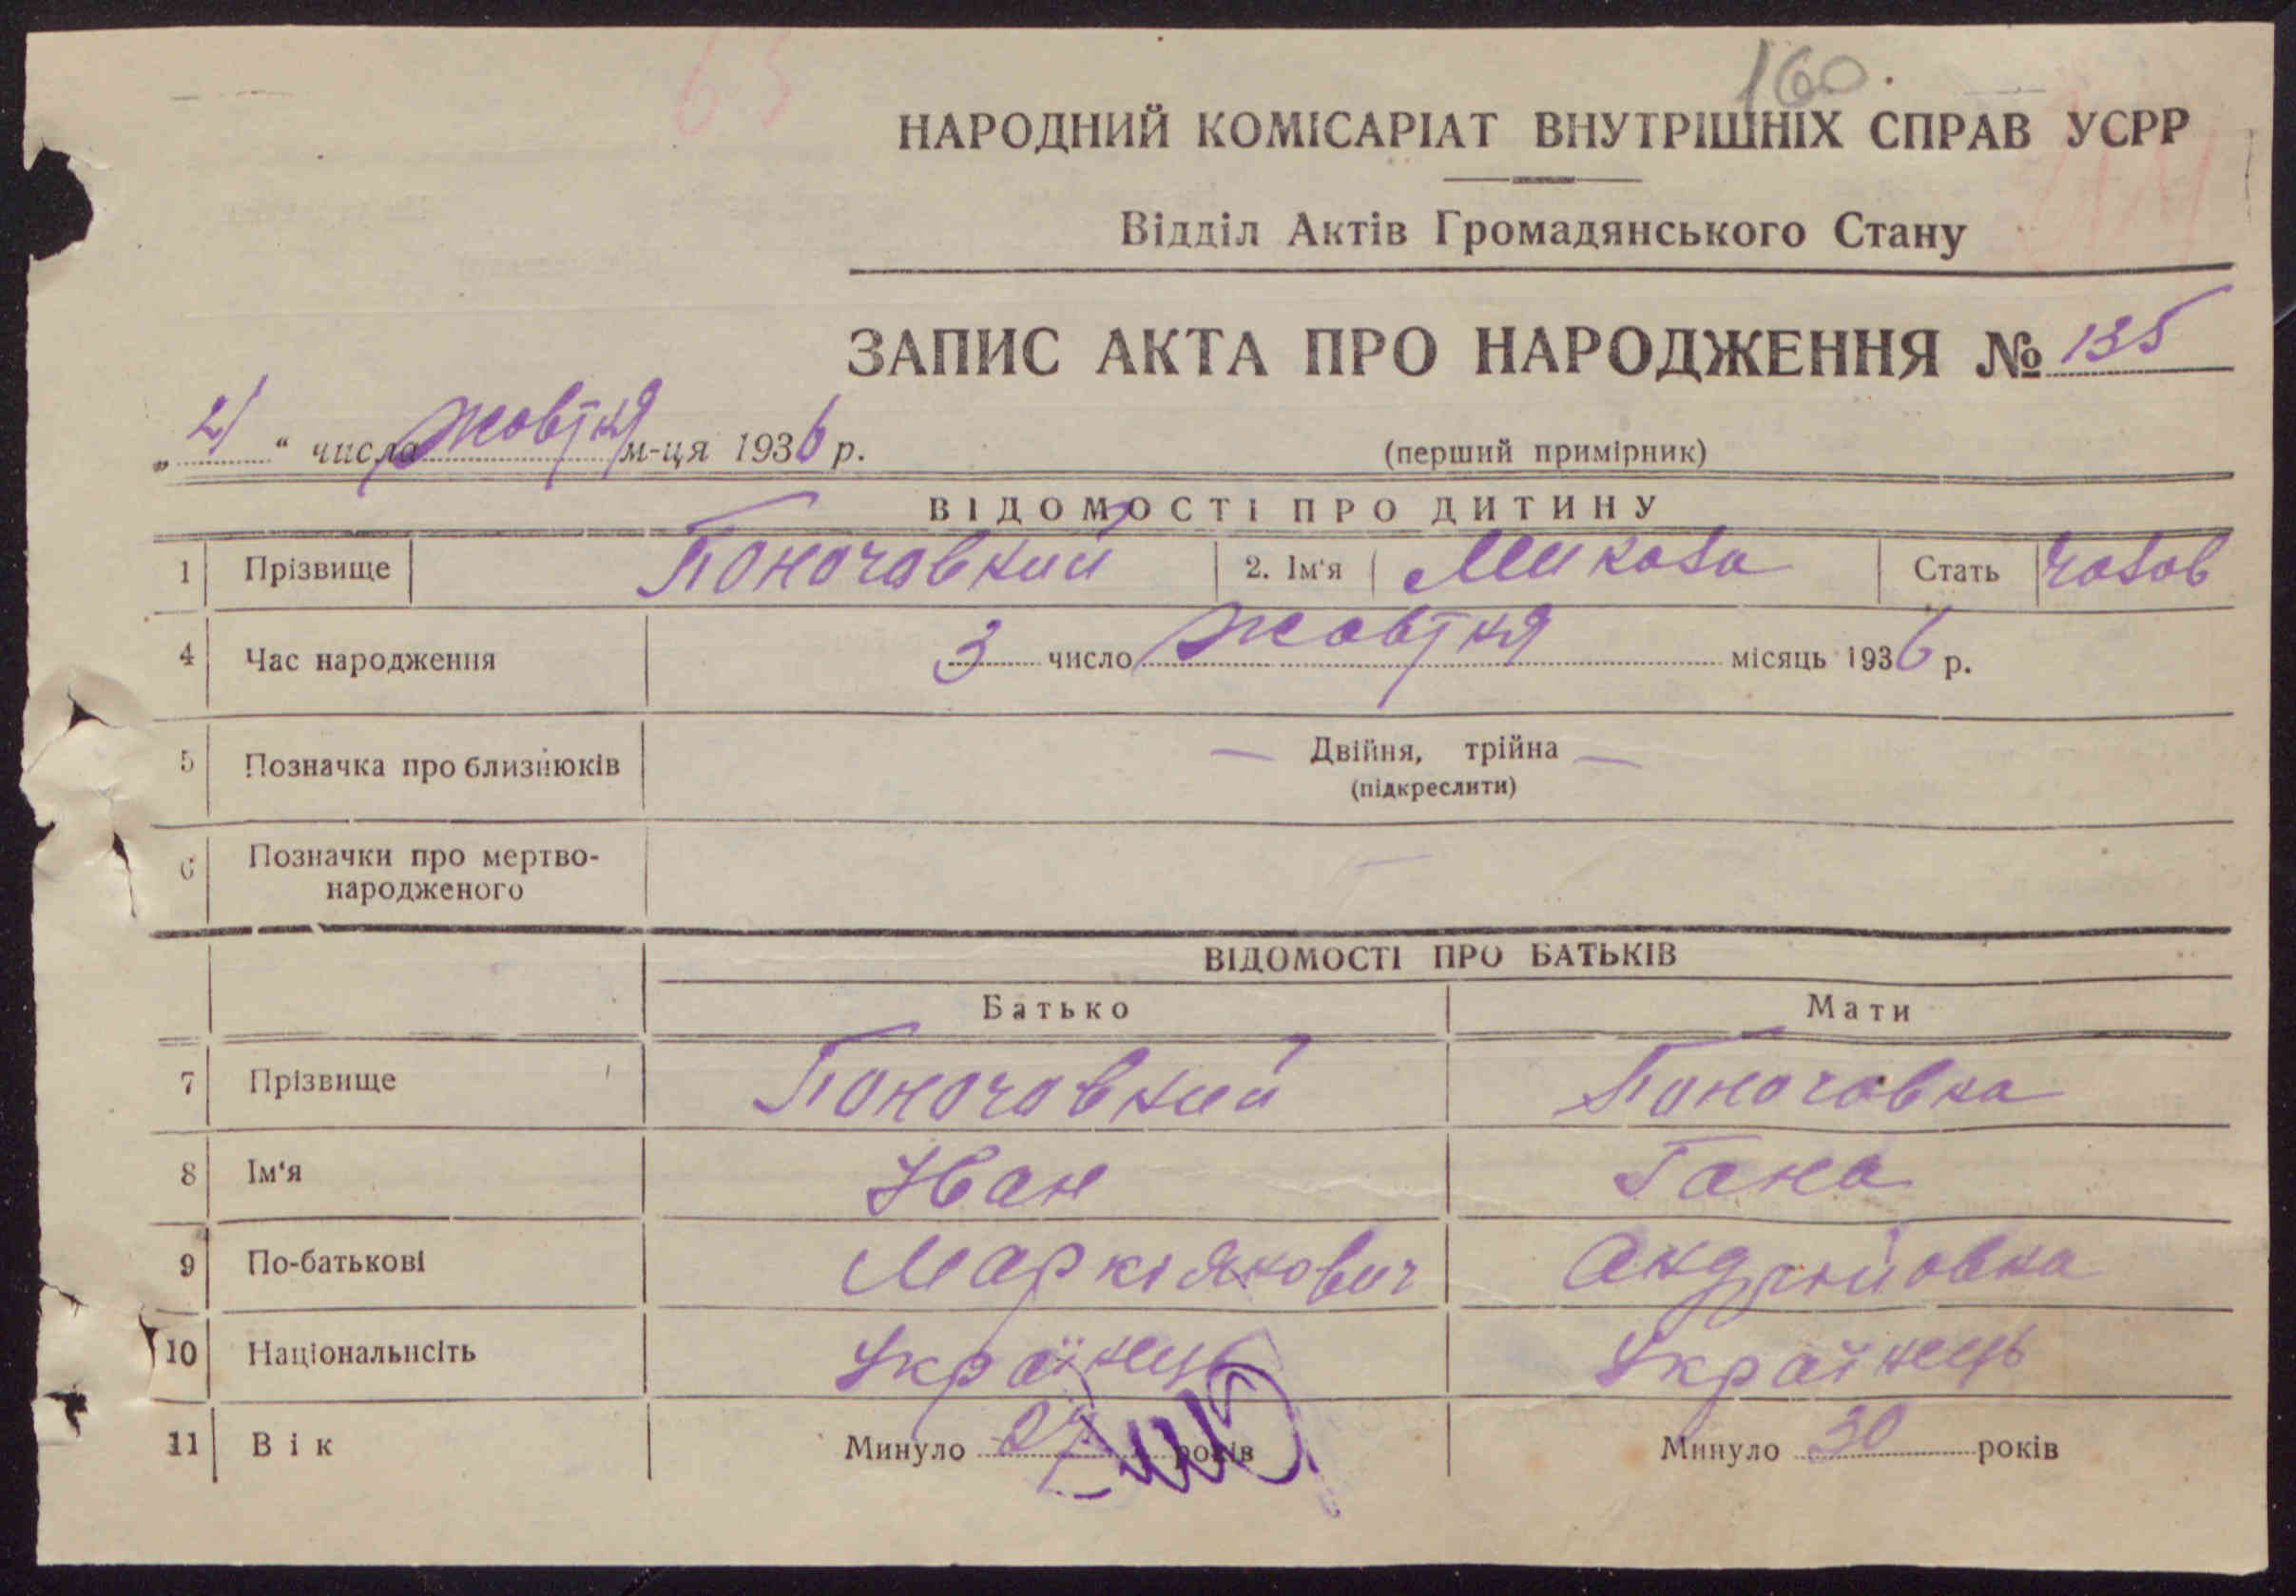 160.
НАРОДНИЙ КОМІСАРІАТ ВНУТРІШНІХ СПРАВ УСРР
Відділ Актів Громадянського Стану
ЗАПИС АКТА ПРО НАРОДЖЕННЯ № 135
„ 21 “ числа жовтня м-ця 1936 р.
(перший примірник)
ВІДОМОСТІ ПРО ДИТИНУ
1 Прізвище Поночовний 2. Ім'я Микола Стать чолов
4 Час народження 3 число жовтня місяць 1936 р.
5 Позначка про близнюків — Двійня, трійна —
(підкреслити)
6 Позначки про мертво-
народженого
ВІДОМОСТІ ПРО БАТЬКІВ
Батько Мати
7 Прізвище Поночовний Поночовна
8 Ім'я Іван Гана
9 По-батькові Маркіянович Андрійовна
10 Національнсіть Українець Українець
11 Вік Минуло 27 років Минуло 30 років